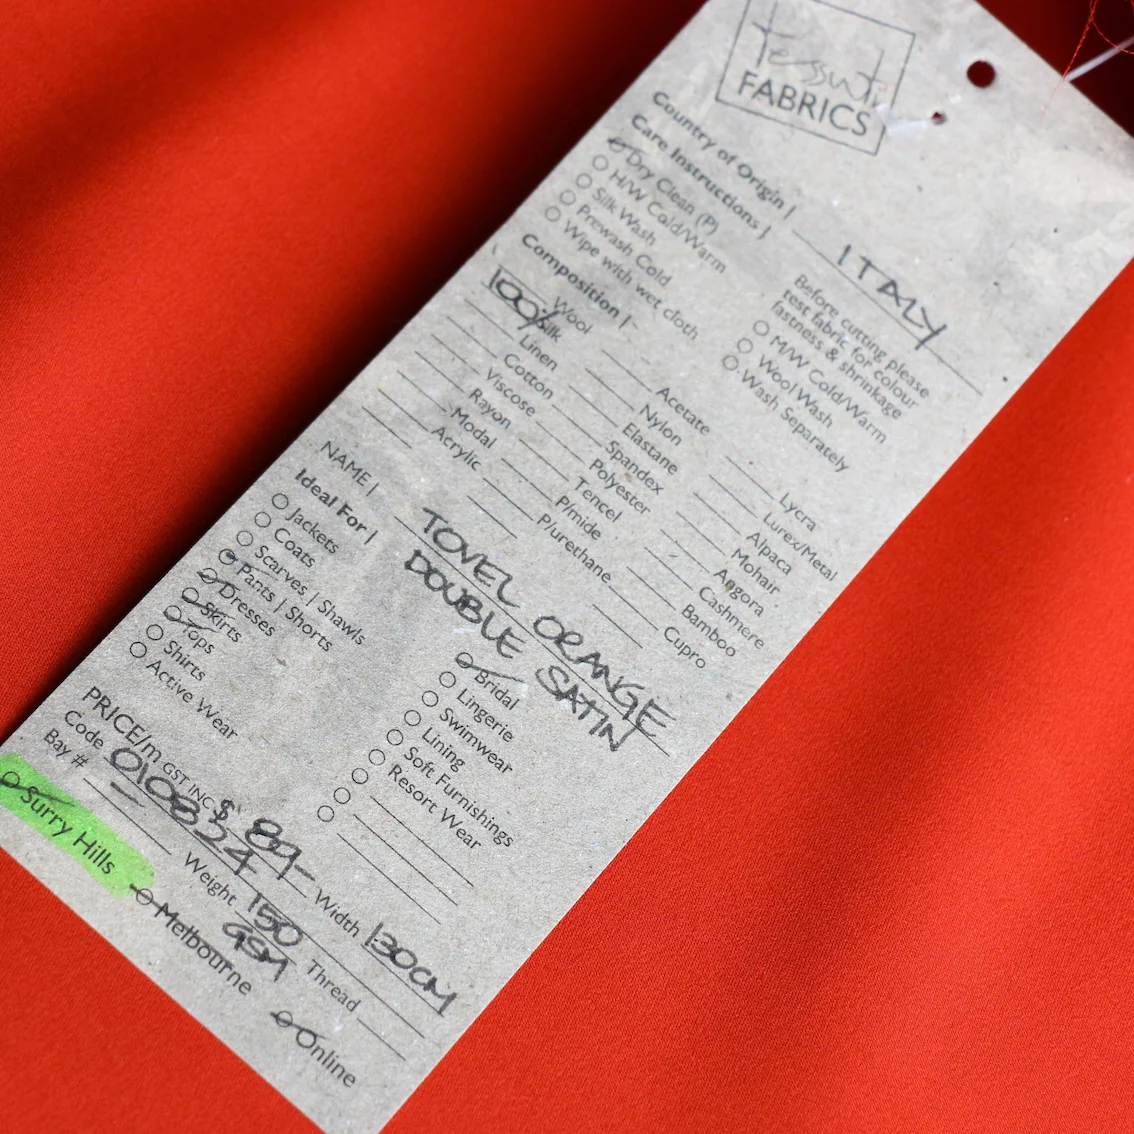 Tessuti
FABRICS
Country of Origin | ITALY
Care Instructions |
Dry Clean (P)
H/W Cold/Warm
Silk Wash
Prewash Cold
Wipe with wet cloth
Before cutting please
test fabric for colour
fastness & shrinkage
M/W Cold/Warm
Wool Wash
Wash Separately
Composition |
Wool
100% Silk
Linen
Cotton
Viscose
Rayon
Modal
Acrylic
Acetate
Nylon
Elastane
Spandex
Polyester
Tencel
P/mide
P/urethane
Lycra
Lurex/Metal
Alpaca
Mohair
Angora
Cashmere
Bamboo
Cupro
NAME | TOVEL ORANGE
DOUBLE SATIN
Ideal For |
Jackets
Coats
Scarves | Shawls
Pants | Shorts
Dresses
Skirts
Tops
Shirts
Active Wear
Bridal
Lingerie
Swimwear
Lining
Soft Furnishings
Resort Wear
PRICE/m GST INC $ 89-
Code 010834
Width 130CM
Bay #
Weight 150
GSM
Thread
Surry Hills
Melbourne
Online